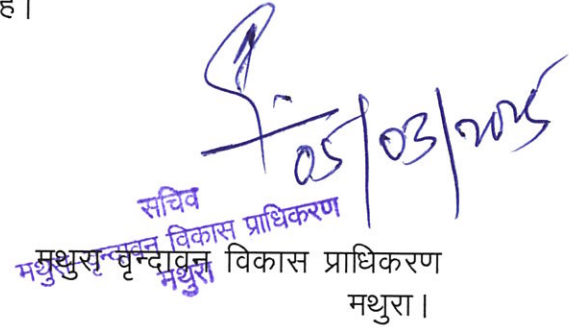 है।
05/03/2025
सचिव
मथुरा-वृन्दावन विकास प्राधिकरण
मथुरा
मथुरा वृन्दावन विकास प्राधिकरण
मथुरा।